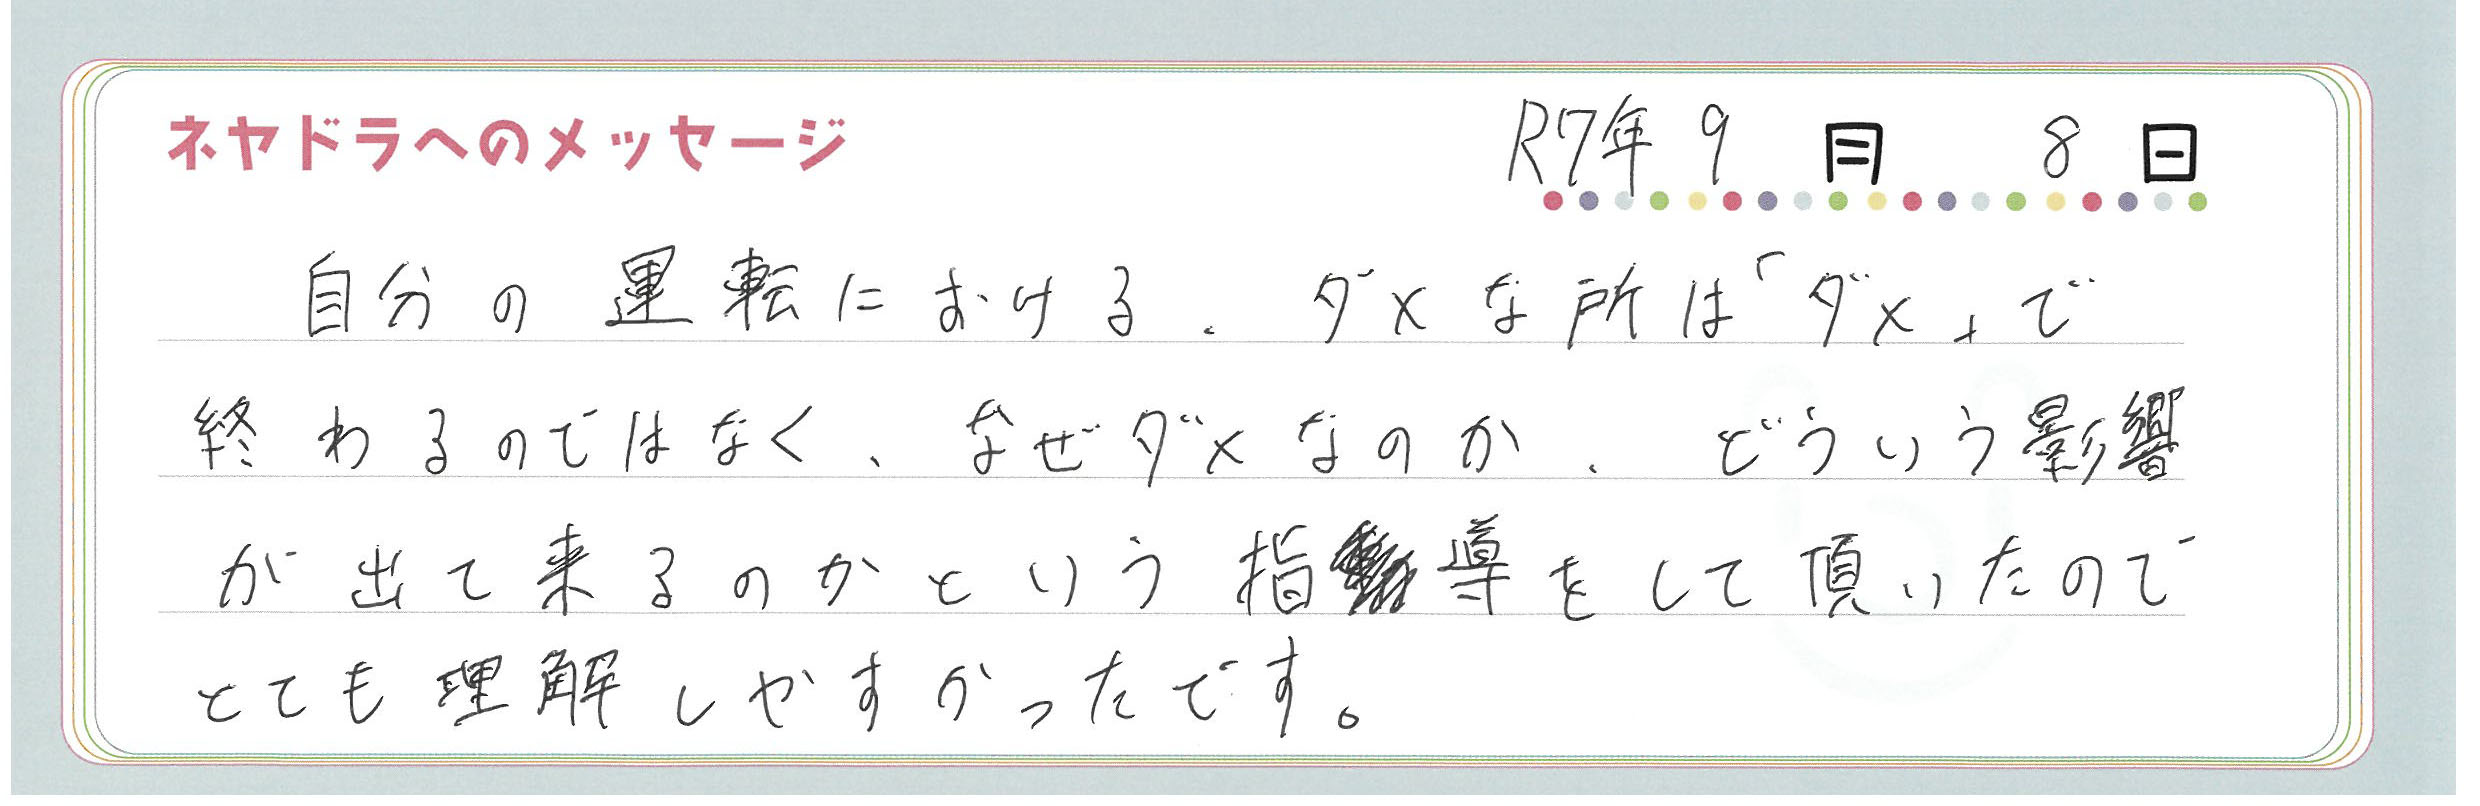 ネヤドラへのメッセージ
R7年 9 月 8 日
自分の運転における、ダメな所は「ダメ」で
終わるのではなく、なぜダメなのか、どういう影響
が出て来るのかという指導をして頂いたので
とても理解しやすかったです。